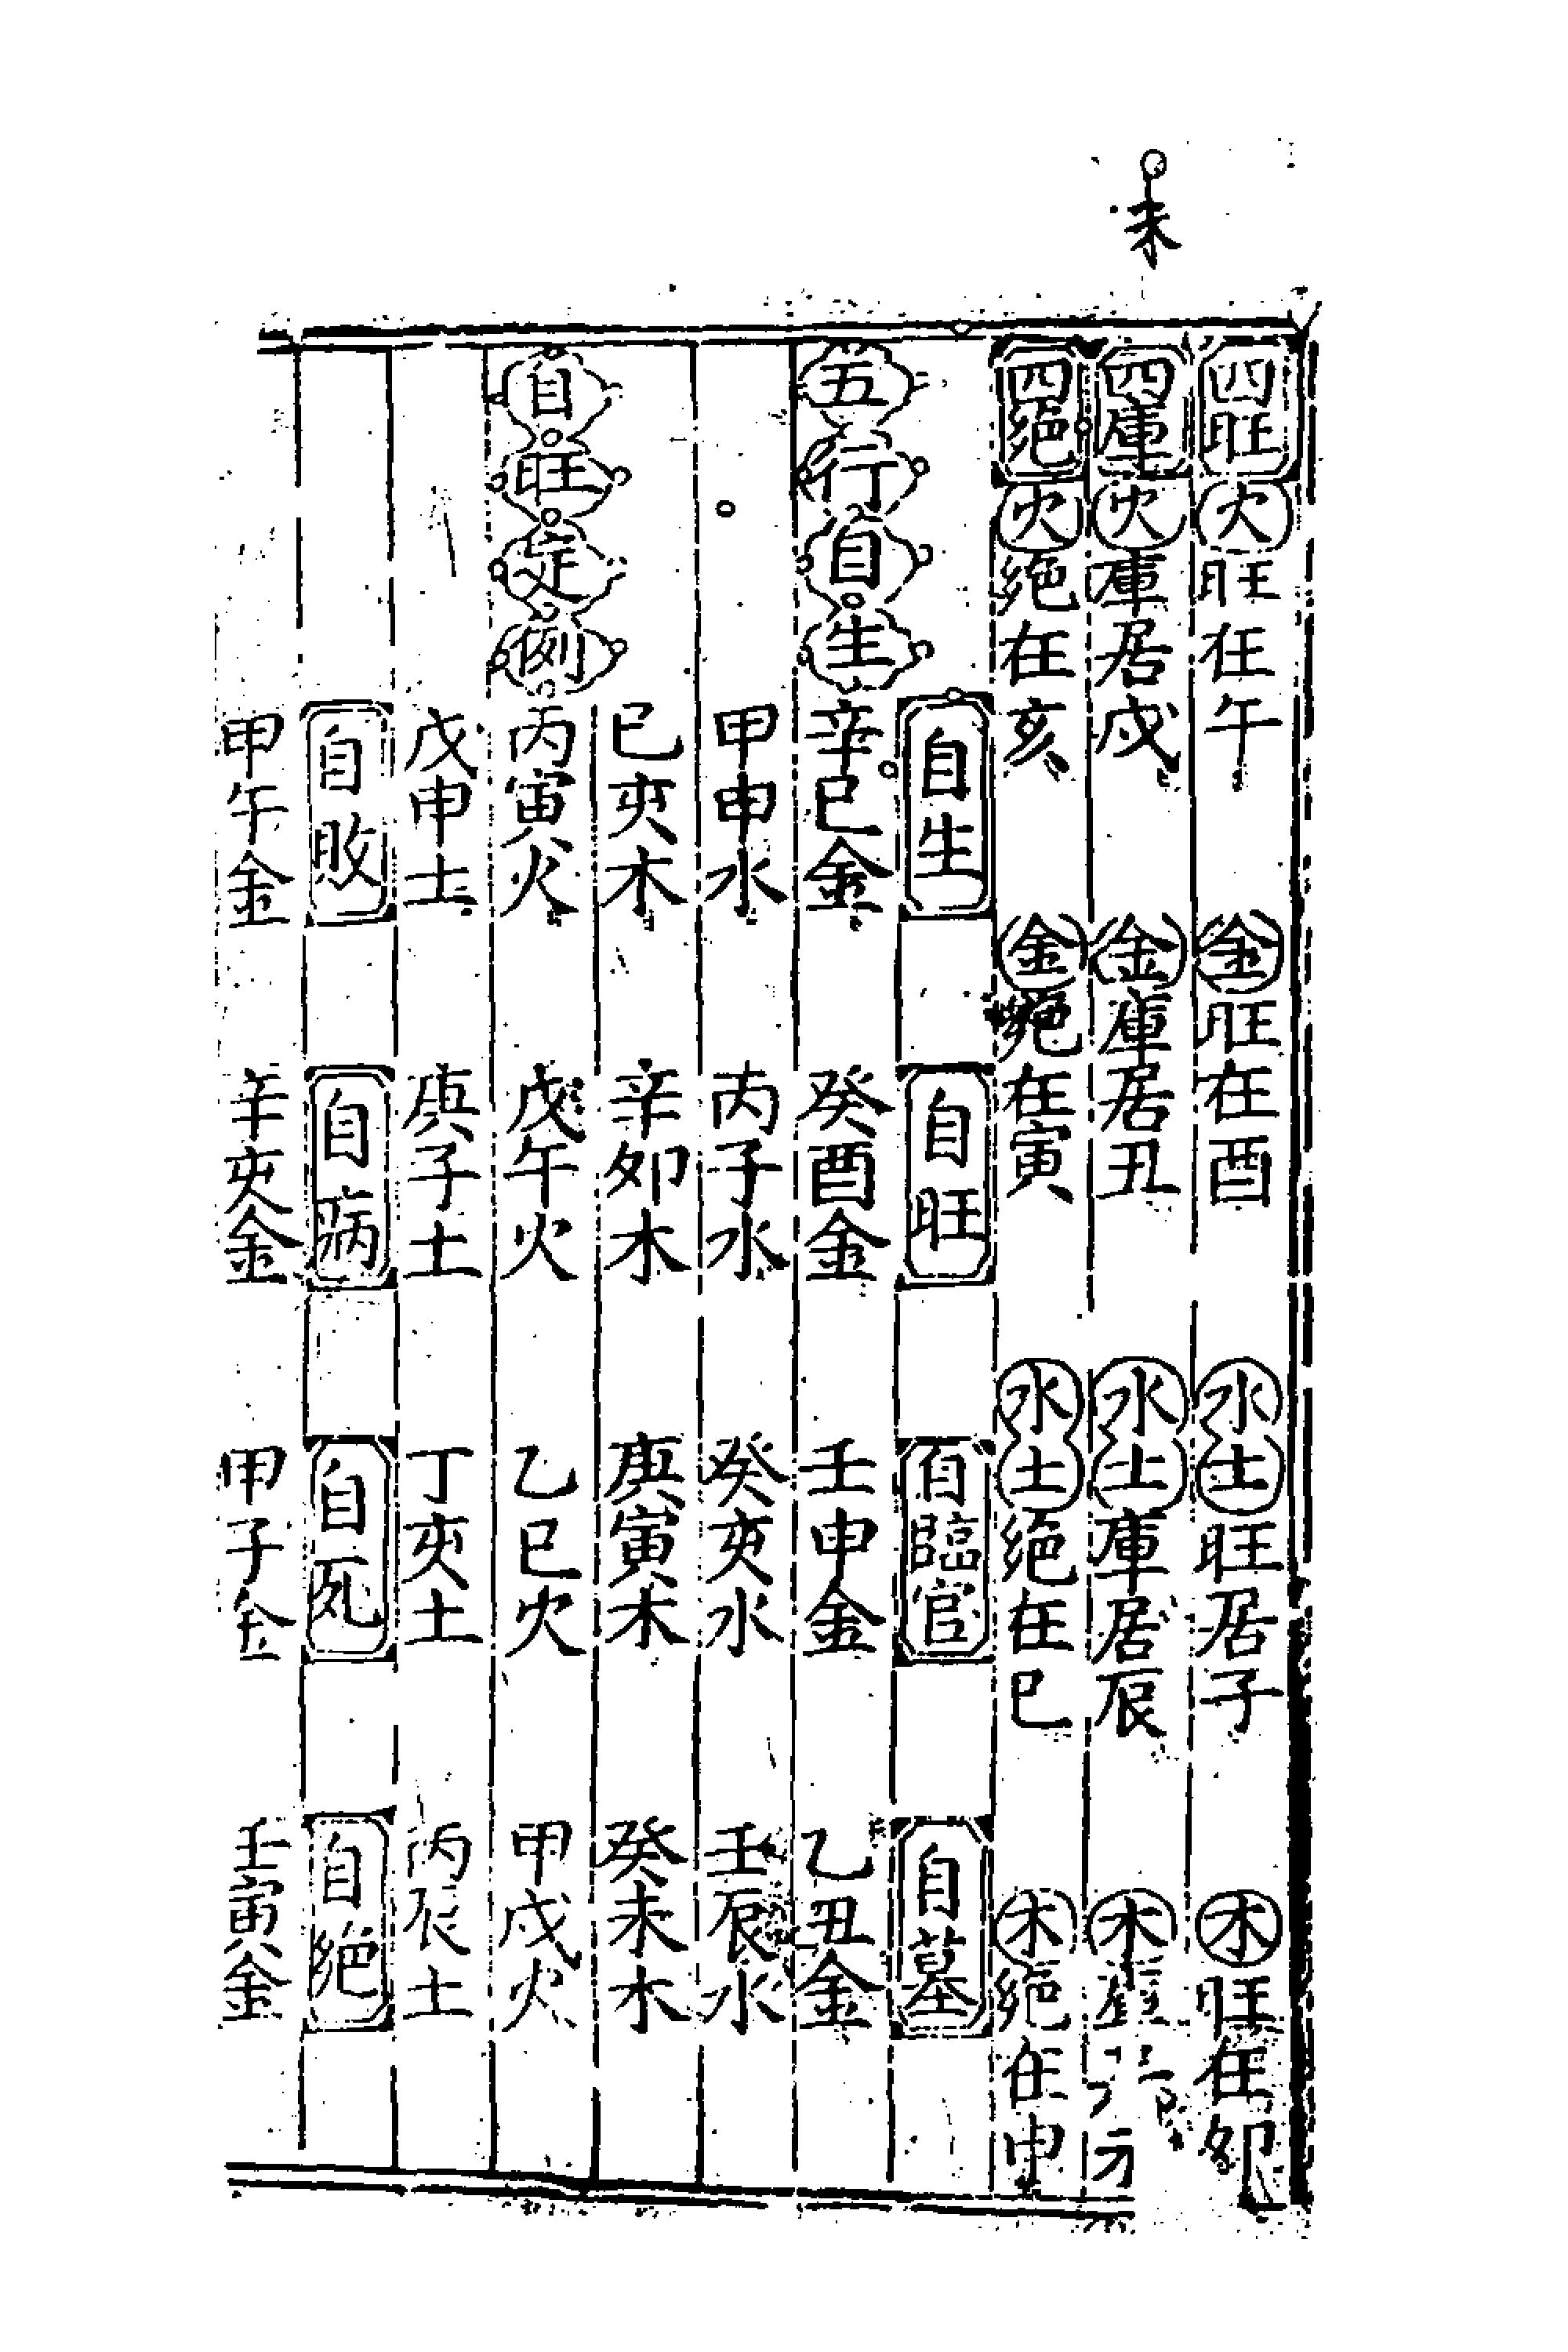 未
四旺 火旺在午 金旺在酉 水土旺居子 木旺在卯
四庫 火庫居戌 金庫居丑 水土庫居辰 木
四絕 火絕在亥 金絕在寅 水土絕在巳 木絕在申
自生 自旺 自臨官 自墓
五行自生 辛巳金 癸酉金 壬申金 乙丑金
甲申水 丙子水 癸亥水 壬辰水
己亥木 辛卯木 庚寅木 癸未木
自旺定例 丙寅火 戊午火 乙巳火 甲戌火
戊申土 庚子土 丁亥土 丙辰土
自敗 自病 自死 自絕
甲午金 辛亥金 甲子金 壬寅金